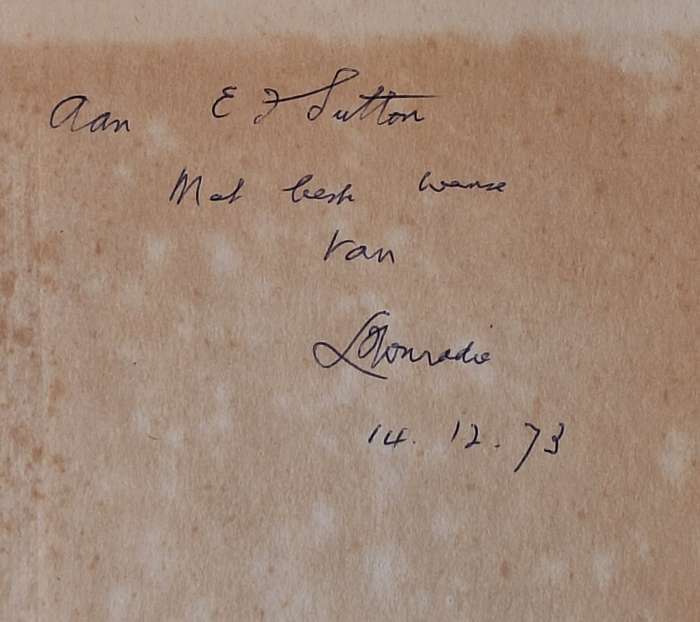 Aan E F Sutton
Met beste wense
van
14. 12. 73